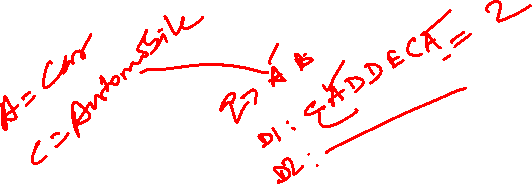 A = Car
C = Automobile
Q → A B
D1 : EADDECA = 2
D2 :